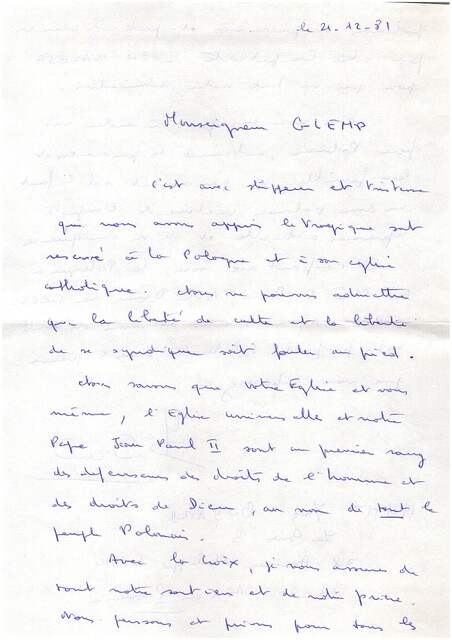 le 21-12-81
Monseigneur GLEMP
c'est avec stupeur et tristesse
que nous avons appris le tragique sort
reservé à la Pologne et à son eglise
catholique. Nous ne pouvons admettre
que la liberté de culte et la liberté
de se syndiquer soit foulée au pied.
Nous savons que votre Eglise et vous
même, l'Eglise universelle et notre
Pape Jean Paul II sont au premier rang
des defenseurs des droits de l'homme et
des droits de Dieu, au nom de tout le
peuple Polonais.
Avec la Croix, je vous assure de
tout notre soutien et de notre prière.
Nous pensons et prions pour tous les